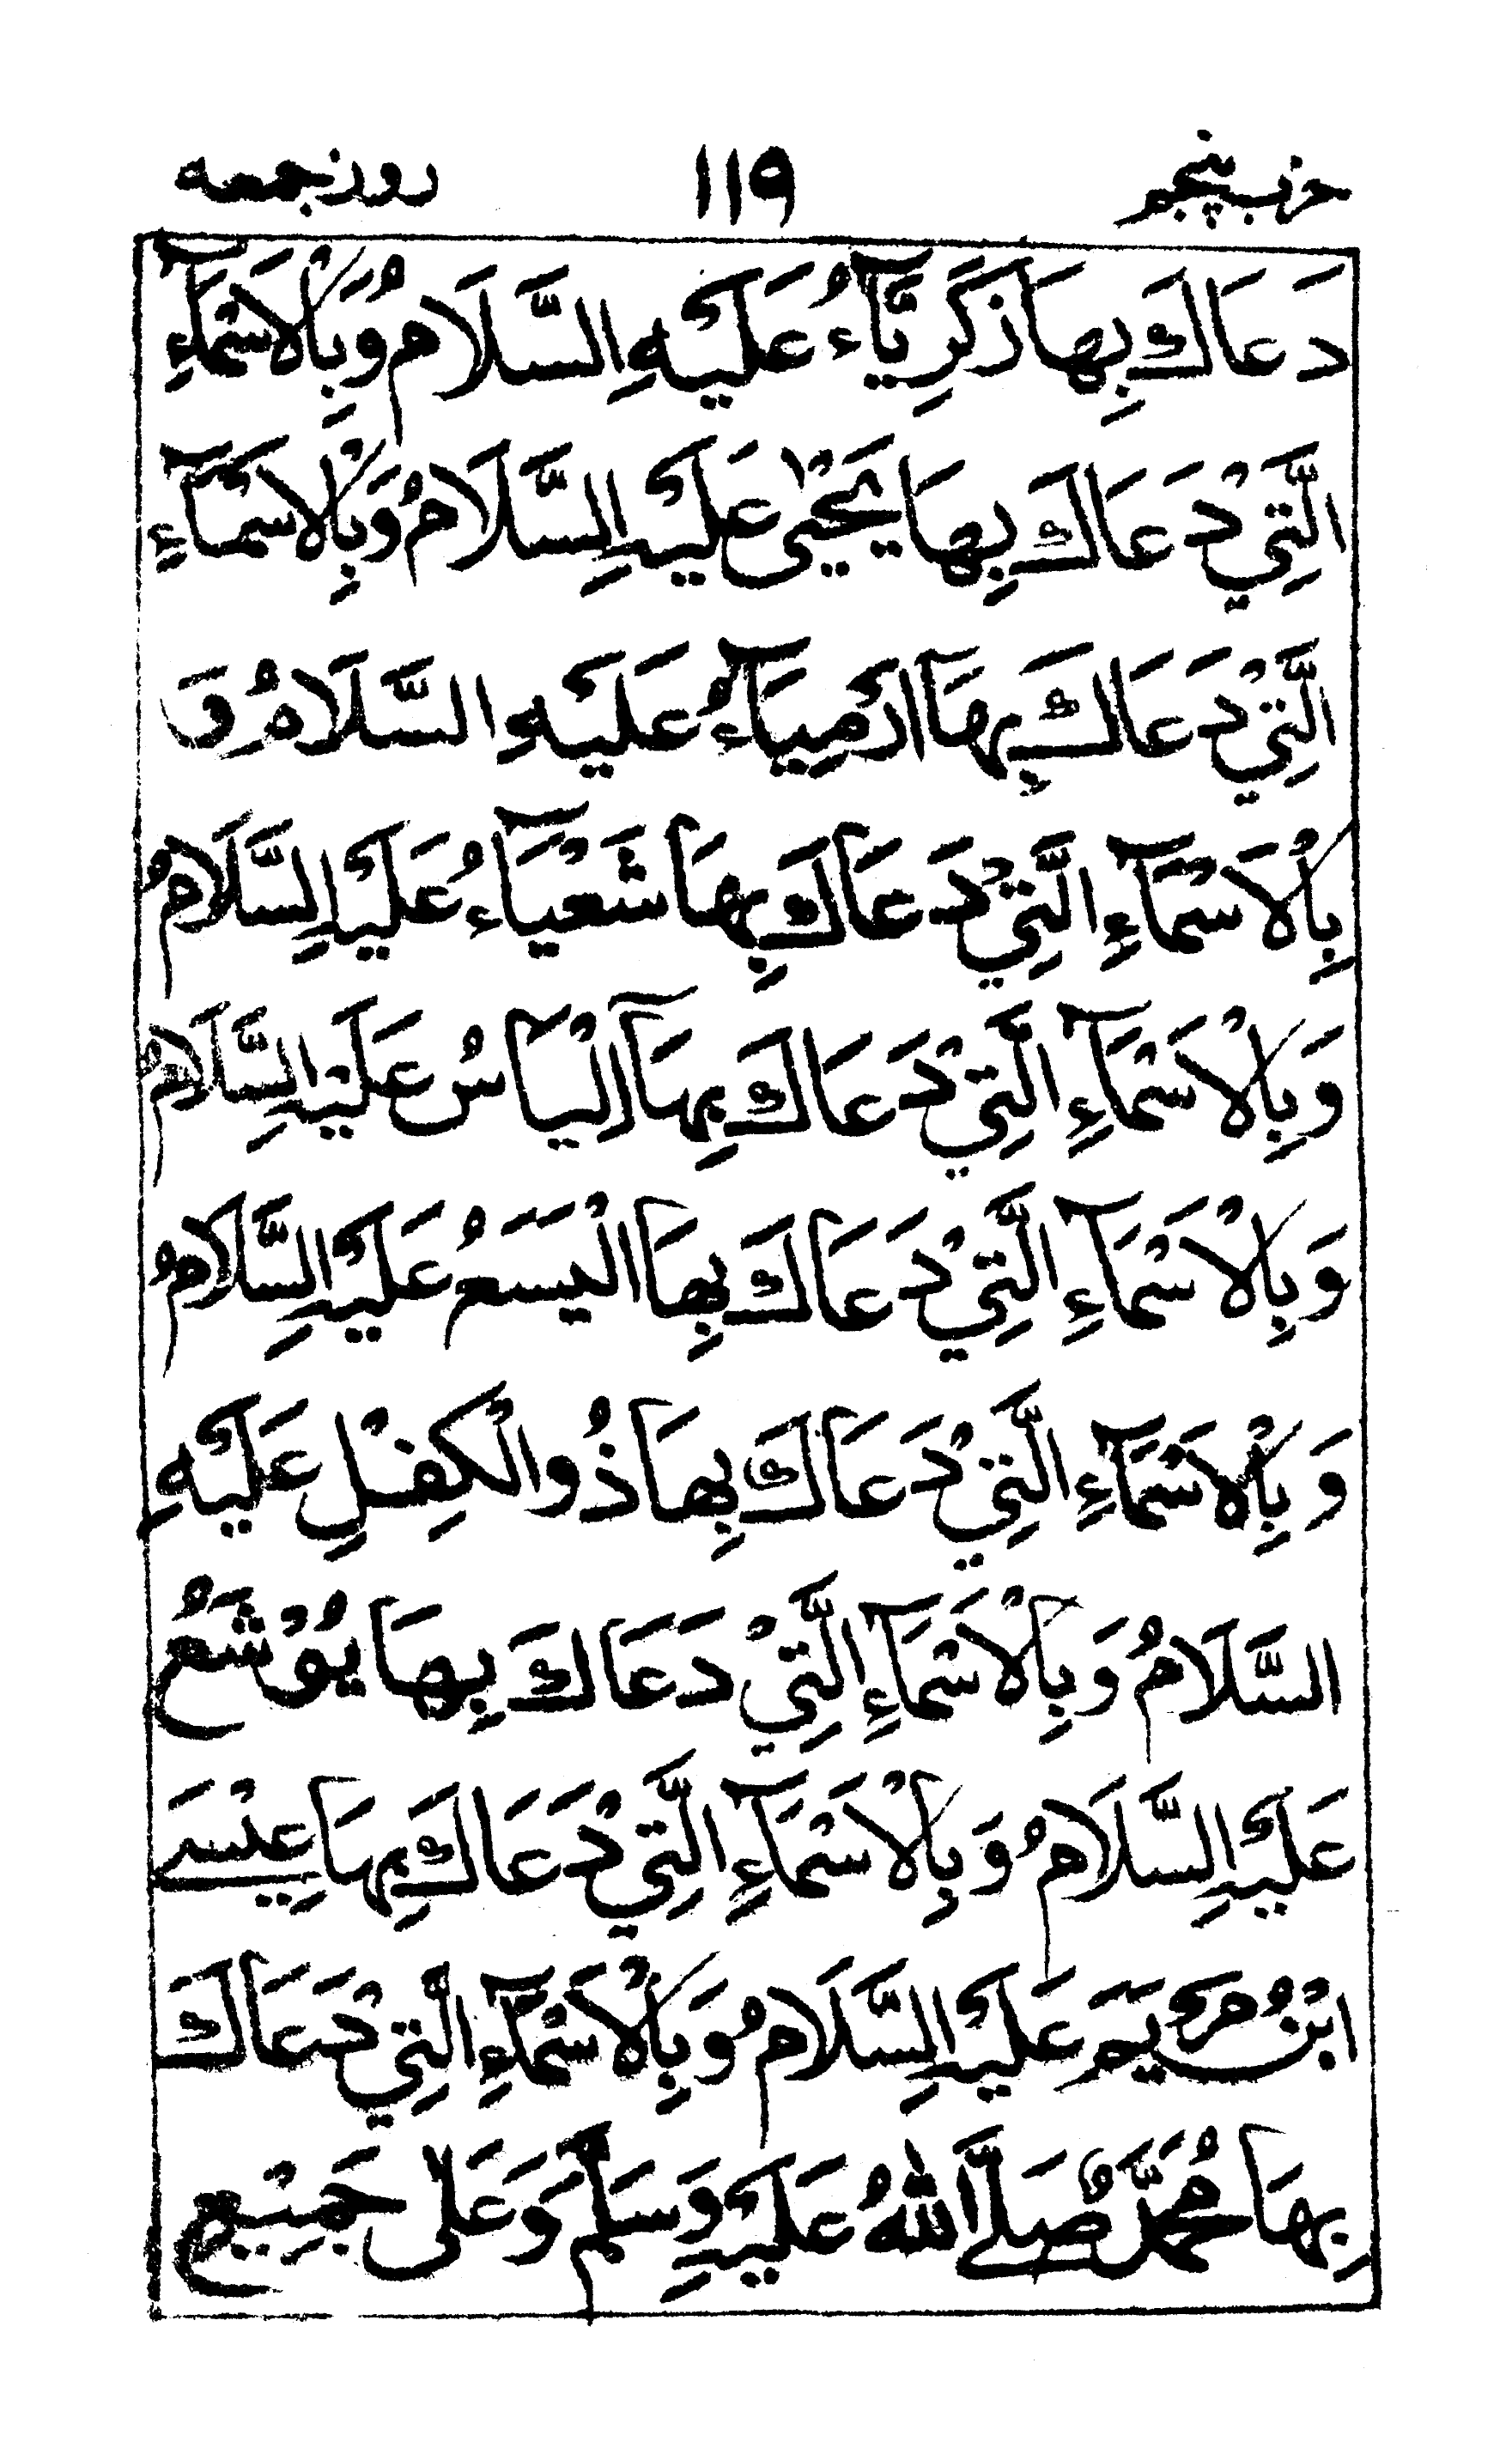 حزب پنجم ١١٩ روز جمعه
دَعَاكَ بِهَا زَكَرِيَّآءُ عَلَيْهِ السَّلَامُ وَبِالْاَسْمَآءِ
الَّتِيْ دَعَاكَ بِهَا يَحْيٰى عَلَيْهِ السَّلَامُ وَبِالْاَسْمَآءِ
الَّتِيْ دَعَاكَ بِهَآ اَرْمِيَآءُ عَلَيْهِ السَّلَامُ وَ
بِالْاَسْمَآءِ الَّتِيْ دَعَاكَ بِهَا شَعْيَآءُ عَلَيْهِ السَّلَامُ
وَبِالْاَسْمَآءِ الَّتِيْ دَعَاكَ بِهَآ اِلْيَاسُ عَلَيْهِ السَّلَامُ
وَبِالْاَسْمَآءِ الَّتِيْ دَعَاكَ بِهَا الْيَسَعُ عَلَيْهِ السَّلَامُ
وَبِالْاَسْمَآءِ الَّتِيْ دَعَاكَ بِهَا ذُو الْكِفْلِ عَلَيْهِ
السَّلَامُ وَبِالْاَسْمَآءِ الَّتِيْ دَعَاكَ بِهَا يُوْشَعُ
عَلَيْهِ السَّلَامُ وَبِالْاَسْمَآءِ الَّتِيْ دَعَاكَ بِهَا عِيْسَے
ابْنُ مَرْيَمَ عَلَيْهِ السَّلَامُ وَبِالْاَسْمَآءِ الَّتِيْ دَعَاكَ
بِهَا مُحَمَّدٌ صَلَّے اللّٰهُ عَلَيْهِ وَسَلَّمَ وَعَلٰى جَمِيْعِ